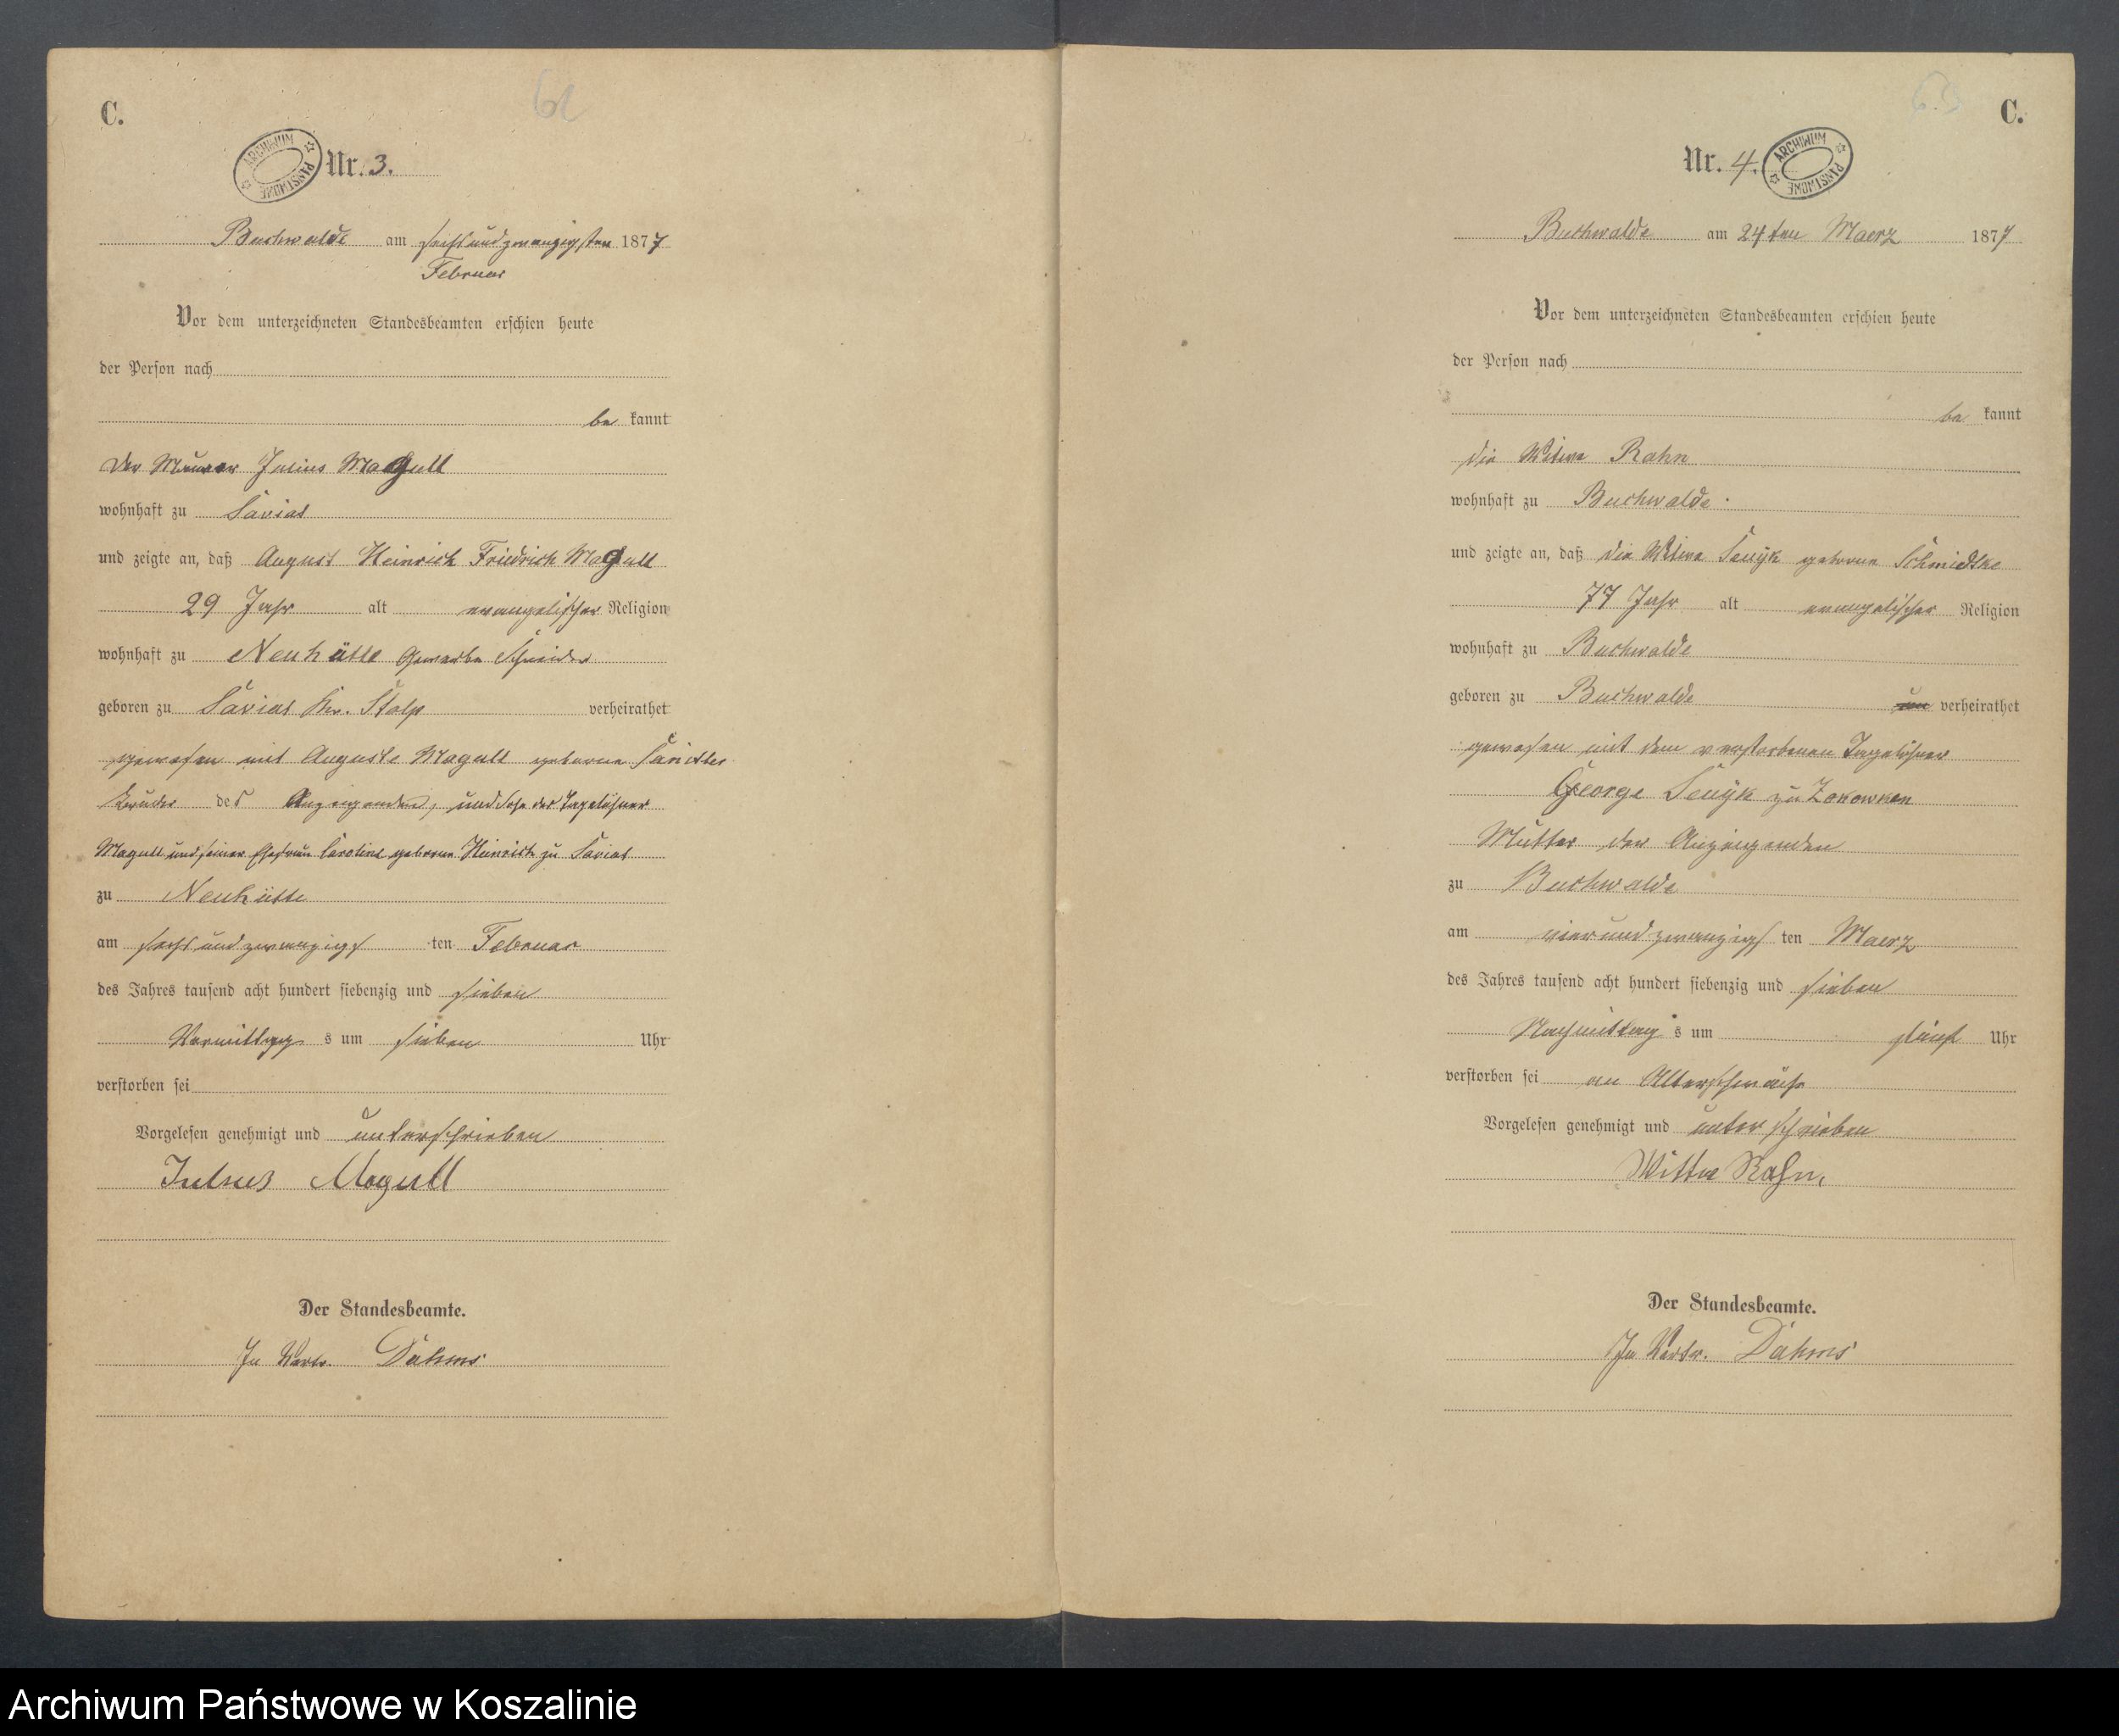 C.
62
Nr. 3.
ARCHIWUM PAŃSTWOWE
Buchwalde am sechsundzwanzigsten 1877
Februar
Vor dem unterzeichneten Standesbeamten erschien heute
der Person nach
be kannt
der Maurer Julius Magull
wohnhaft zu
und zeigte an, daß August Heinrich Friedrich Magull
29 Jahr alt evangelischer Religion
wohnhaft zu Neuhütte Gewerbe Schneider
geboren zu Kr. Stolp verheirathet
gewesen mit Auguste Magull geborne
Bruder des Anzeigenden, und Sohn der Tagelöhner
Magull und seiner Ehefrau Caroline geborne Heinrich zu
zu Neuhütte
am sechsundzwanzigs ten Februar
des Jahres tausend acht hundert siebenzig und sieben
Vormittags s um sieben Uhr
verstorben sei
Vorgelesen genehmigt und unterschrieben
Julius Magull
Der Standesbeamte.
In Vertr. Dahms
C.
63
Nr. 4.
ARCHIWUM PAŃSTWOWE
Buchwalde am 24ten Maerz 1877
Vor dem unterzeichneten Standesbeamten erschien heute
der Person nach
be kannt
die Witwe Rahn
wohnhaft zu Buchwalde.
und zeigte an, daß die Witwe geborne Schmidtke
77 Jahr alt evangelischer Religion
wohnhaft zu Buchwalde
geboren zu Buchwalde verheirathet
gewesen mit dem verstorbenen Tagelöhner
George zu
Mutter der Anzeigenden
zu Buchwalde
am vierundzwanzigs ten Maerz
des Jahres tausend acht hundert siebenzig und sieben
Nachmittag s um fünf Uhr
verstorben sei an Altersschwäche
Vorgelesen genehmigt und unterschrieben
Wittwe Rahn,
Der Standesbeamte.
In Vertr. Dahms
Archiwum Państwowe w Koszalinie